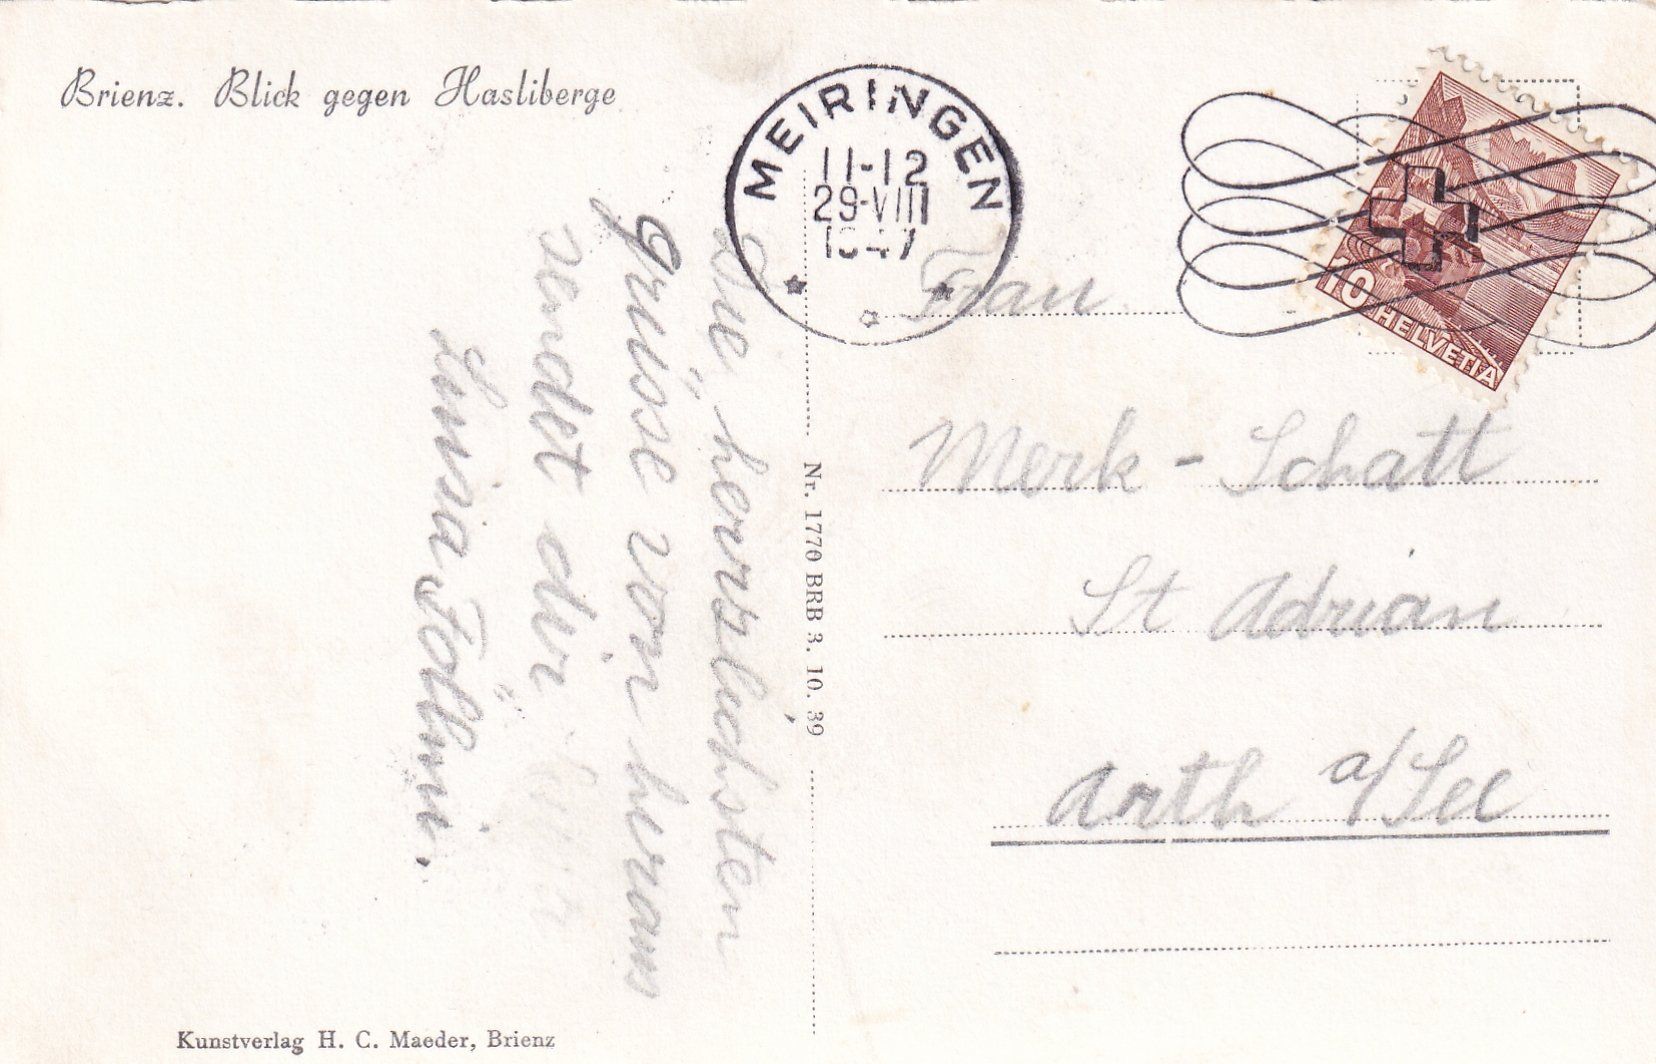 Brienz. Blick gegen Hasliberge
MEIRINGEN
11-12
29-VIII
1947
10 HELVETIA
Die herzlichsten
grüsse von heraus
sendet dir
Luisa Föllmi.
Nr. 1770 BRB 3. 10. 39
Frau
Merk - Schatt
St Adrian
Arth a/See
Kunstverlag H. C. Maeder, Brienz